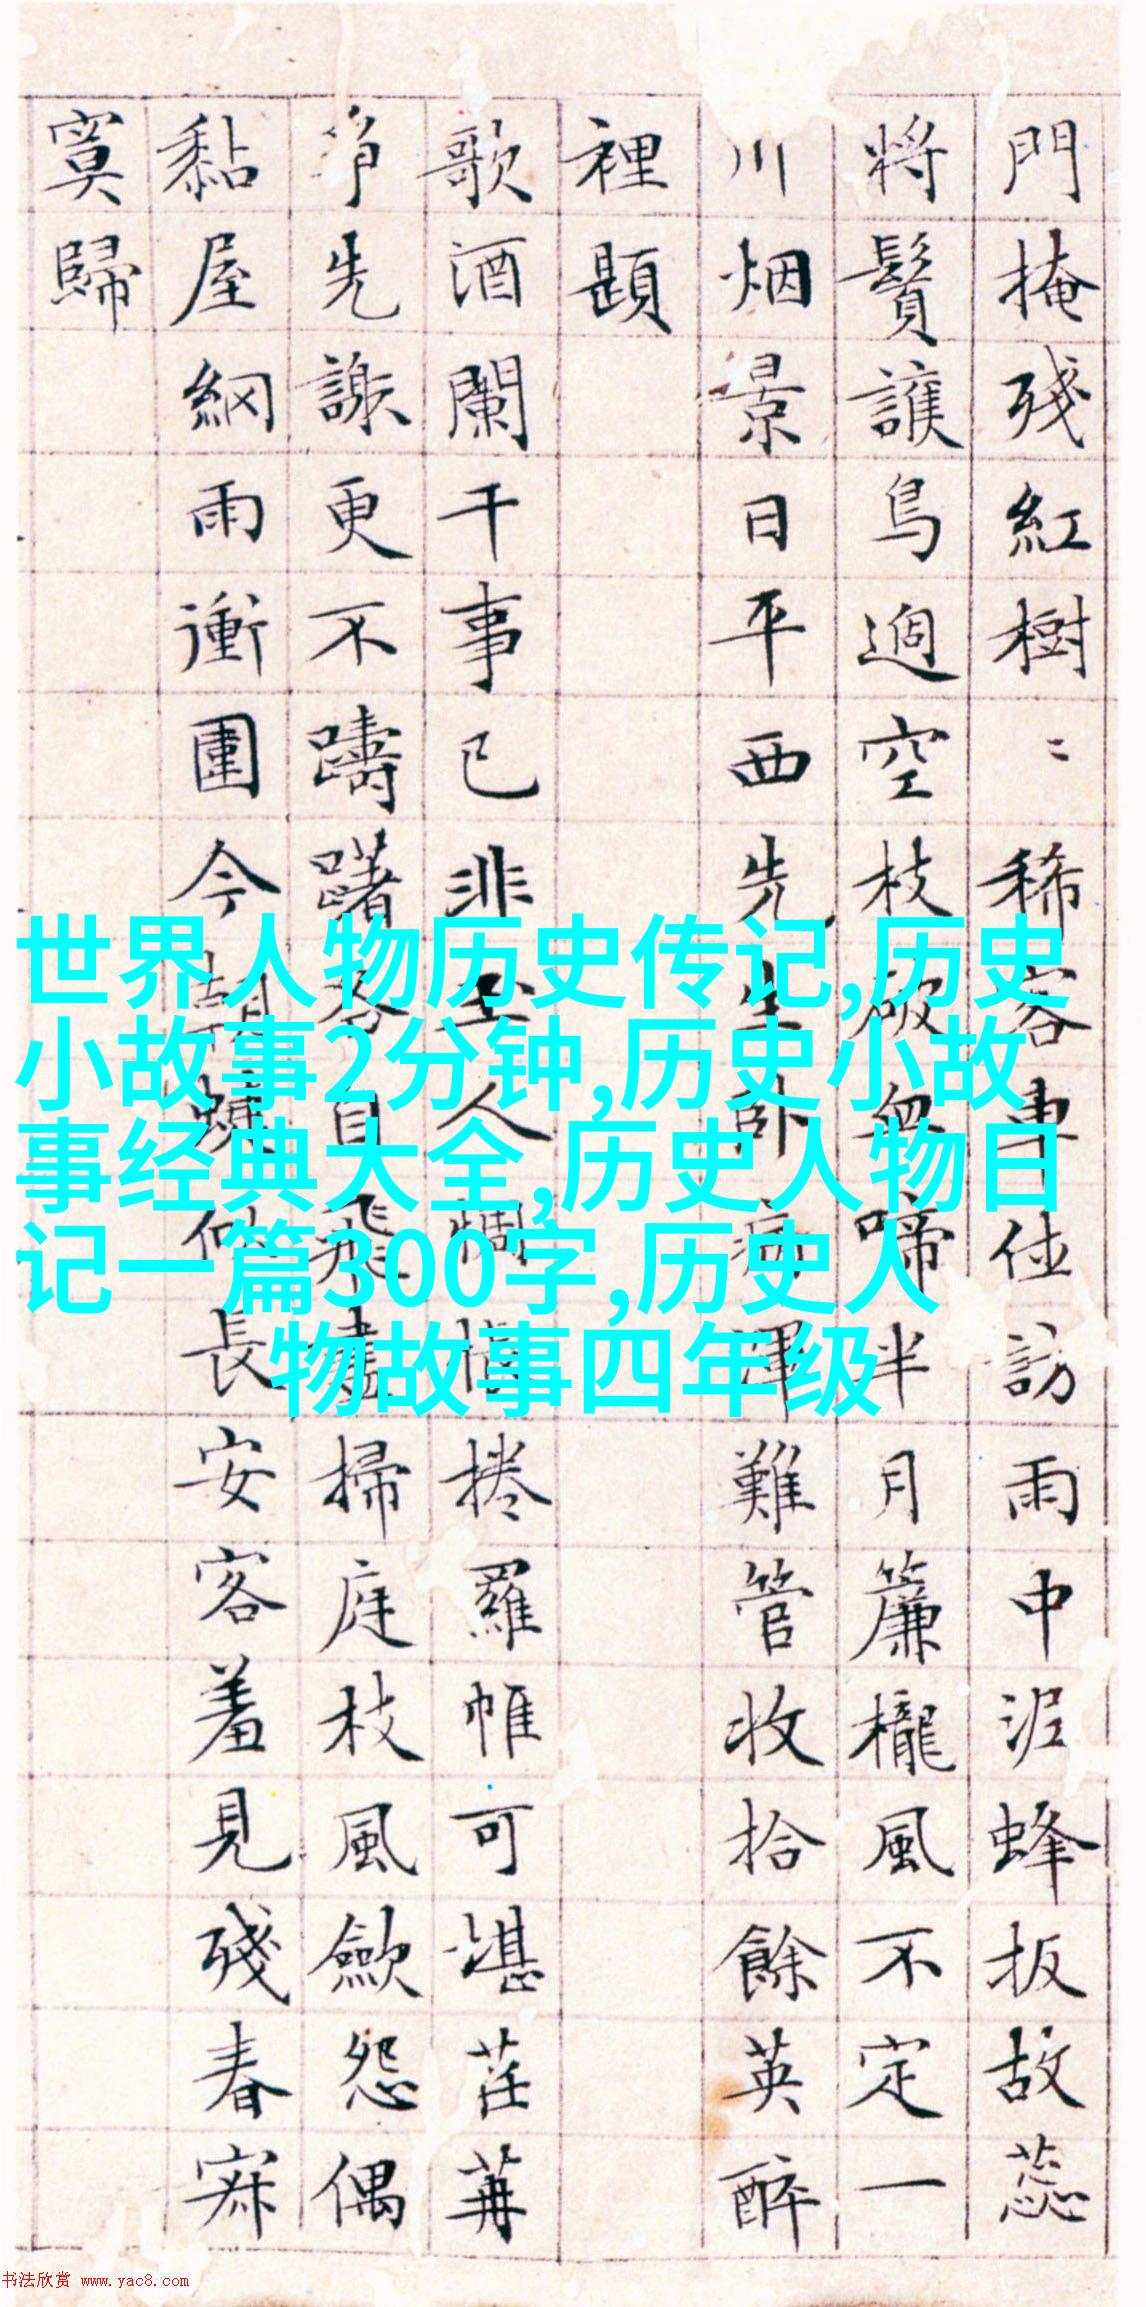 門掩殘紅樹〻稀客車位訪雨中泥蜂扳故蕊
將鬚護鳥過空枝破無啼半月簾櫳風不定一
川烟景日平西先生卧病渾難管收拾餘英醉
裡題
歌酒闌干事已非玉人惆悵捲羅帷可堪荏苒
爭先謝更不躊躇各自飛盡掃庭枝風歛怨偶
黏屋網雨衝圍今朝似長安客羞見殘春寂
寞歸
世界人物历史传记,历史
小故事2分钟,历史小故
事经典大全,历史人物日
记一篇300字,历史人
物故事四年级
书法欣赏 www.yac8.com